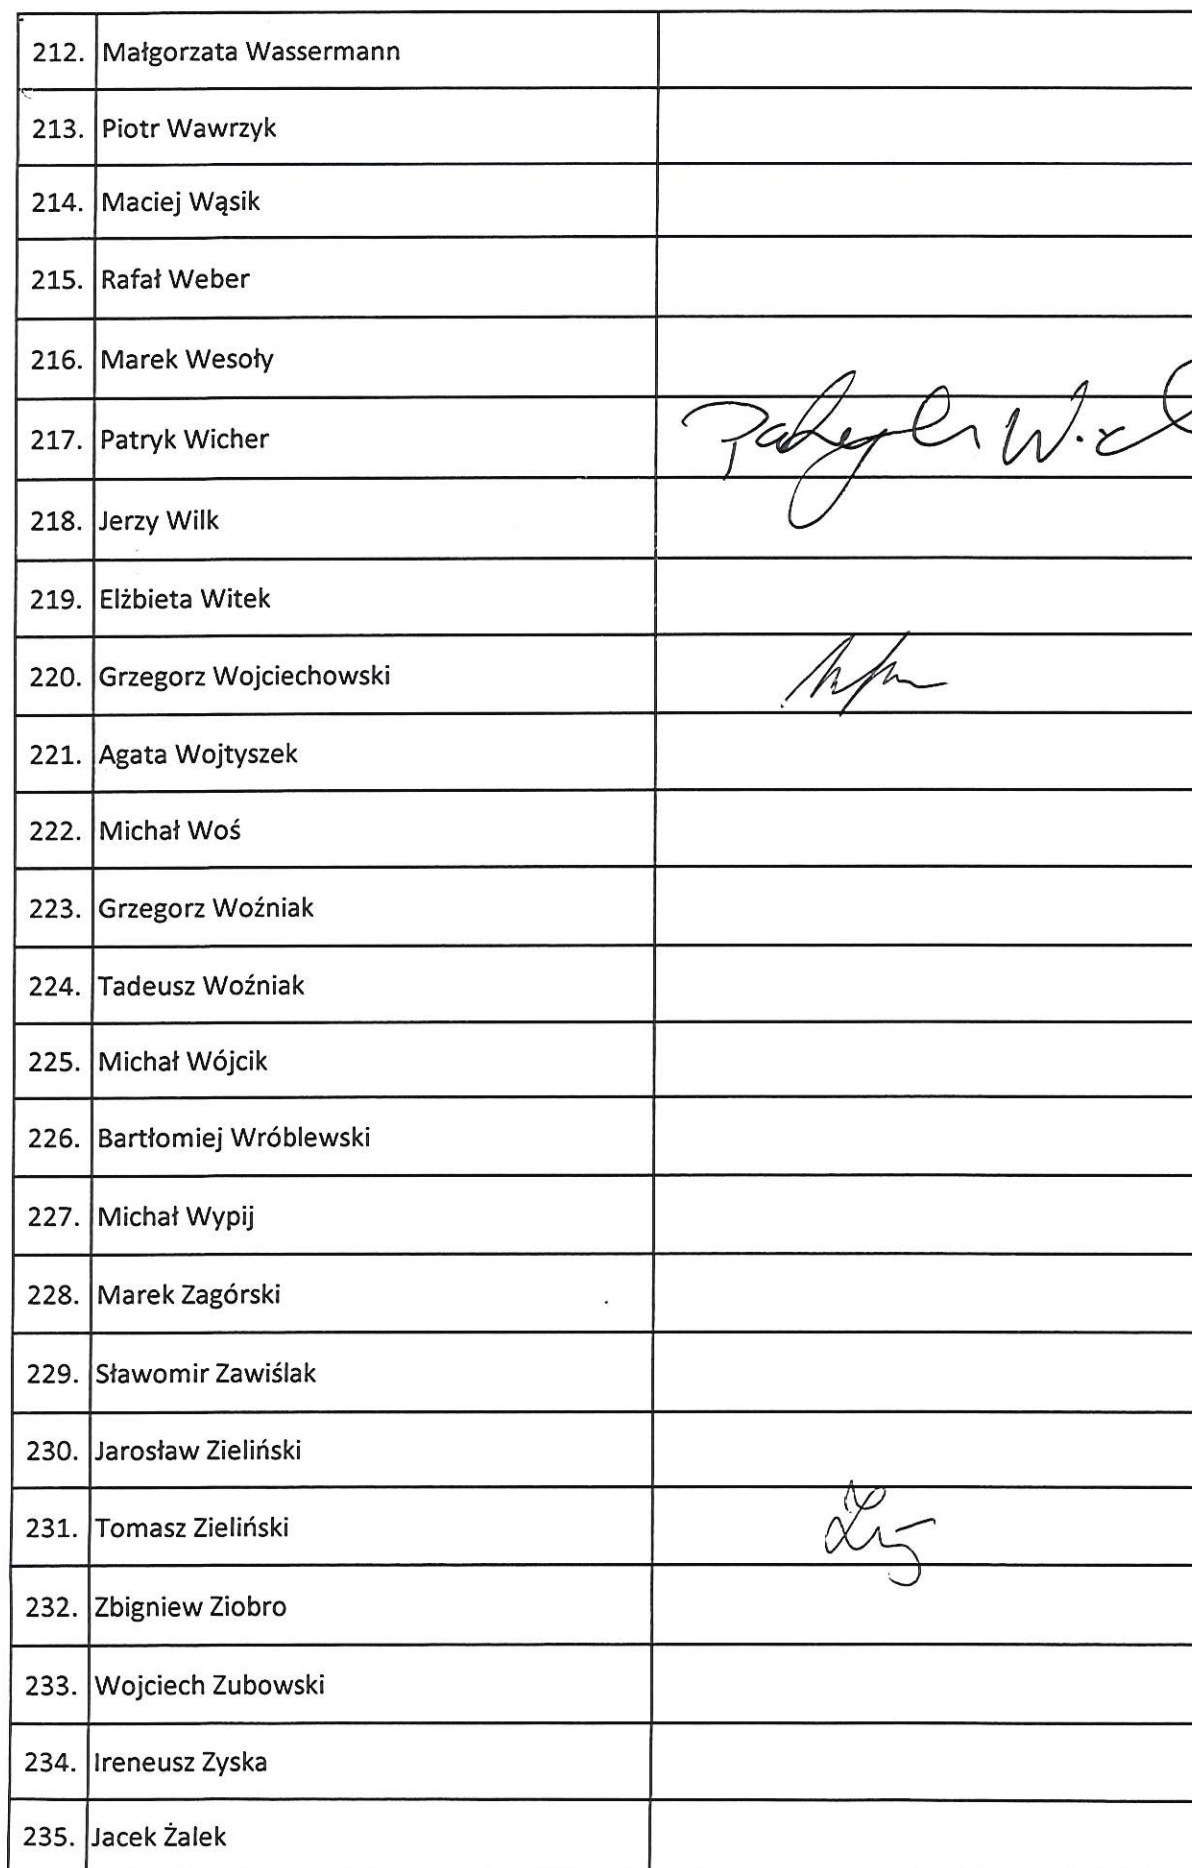 212. Małgorzata Wassermann
213. Piotr Wawrzyk
214. Maciej Wąsik
215. Rafał Weber
216. Marek Wesoły
217. Patryk Wicher Patryk
218. Jerzy Wilk
219. Elżbieta Witek
220. Grzegorz Wojciechowski
221. Agata Wojtyszek
222. Michał Woś
223. Grzegorz Woźniak
224. Tadeusz Woźniak
225. Michał Wójcik
226. Bartłomiej Wróblewski
227. Michał Wypij
228. Marek Zagórski
229. Sławomir Zawiślak
230. Jarosław Zieliński
231. Tomasz Zieliński
232. Zbigniew Ziobro
233. Wojciech Zubowski
234. Ireneusz Zyska
235. Jacek Żalek